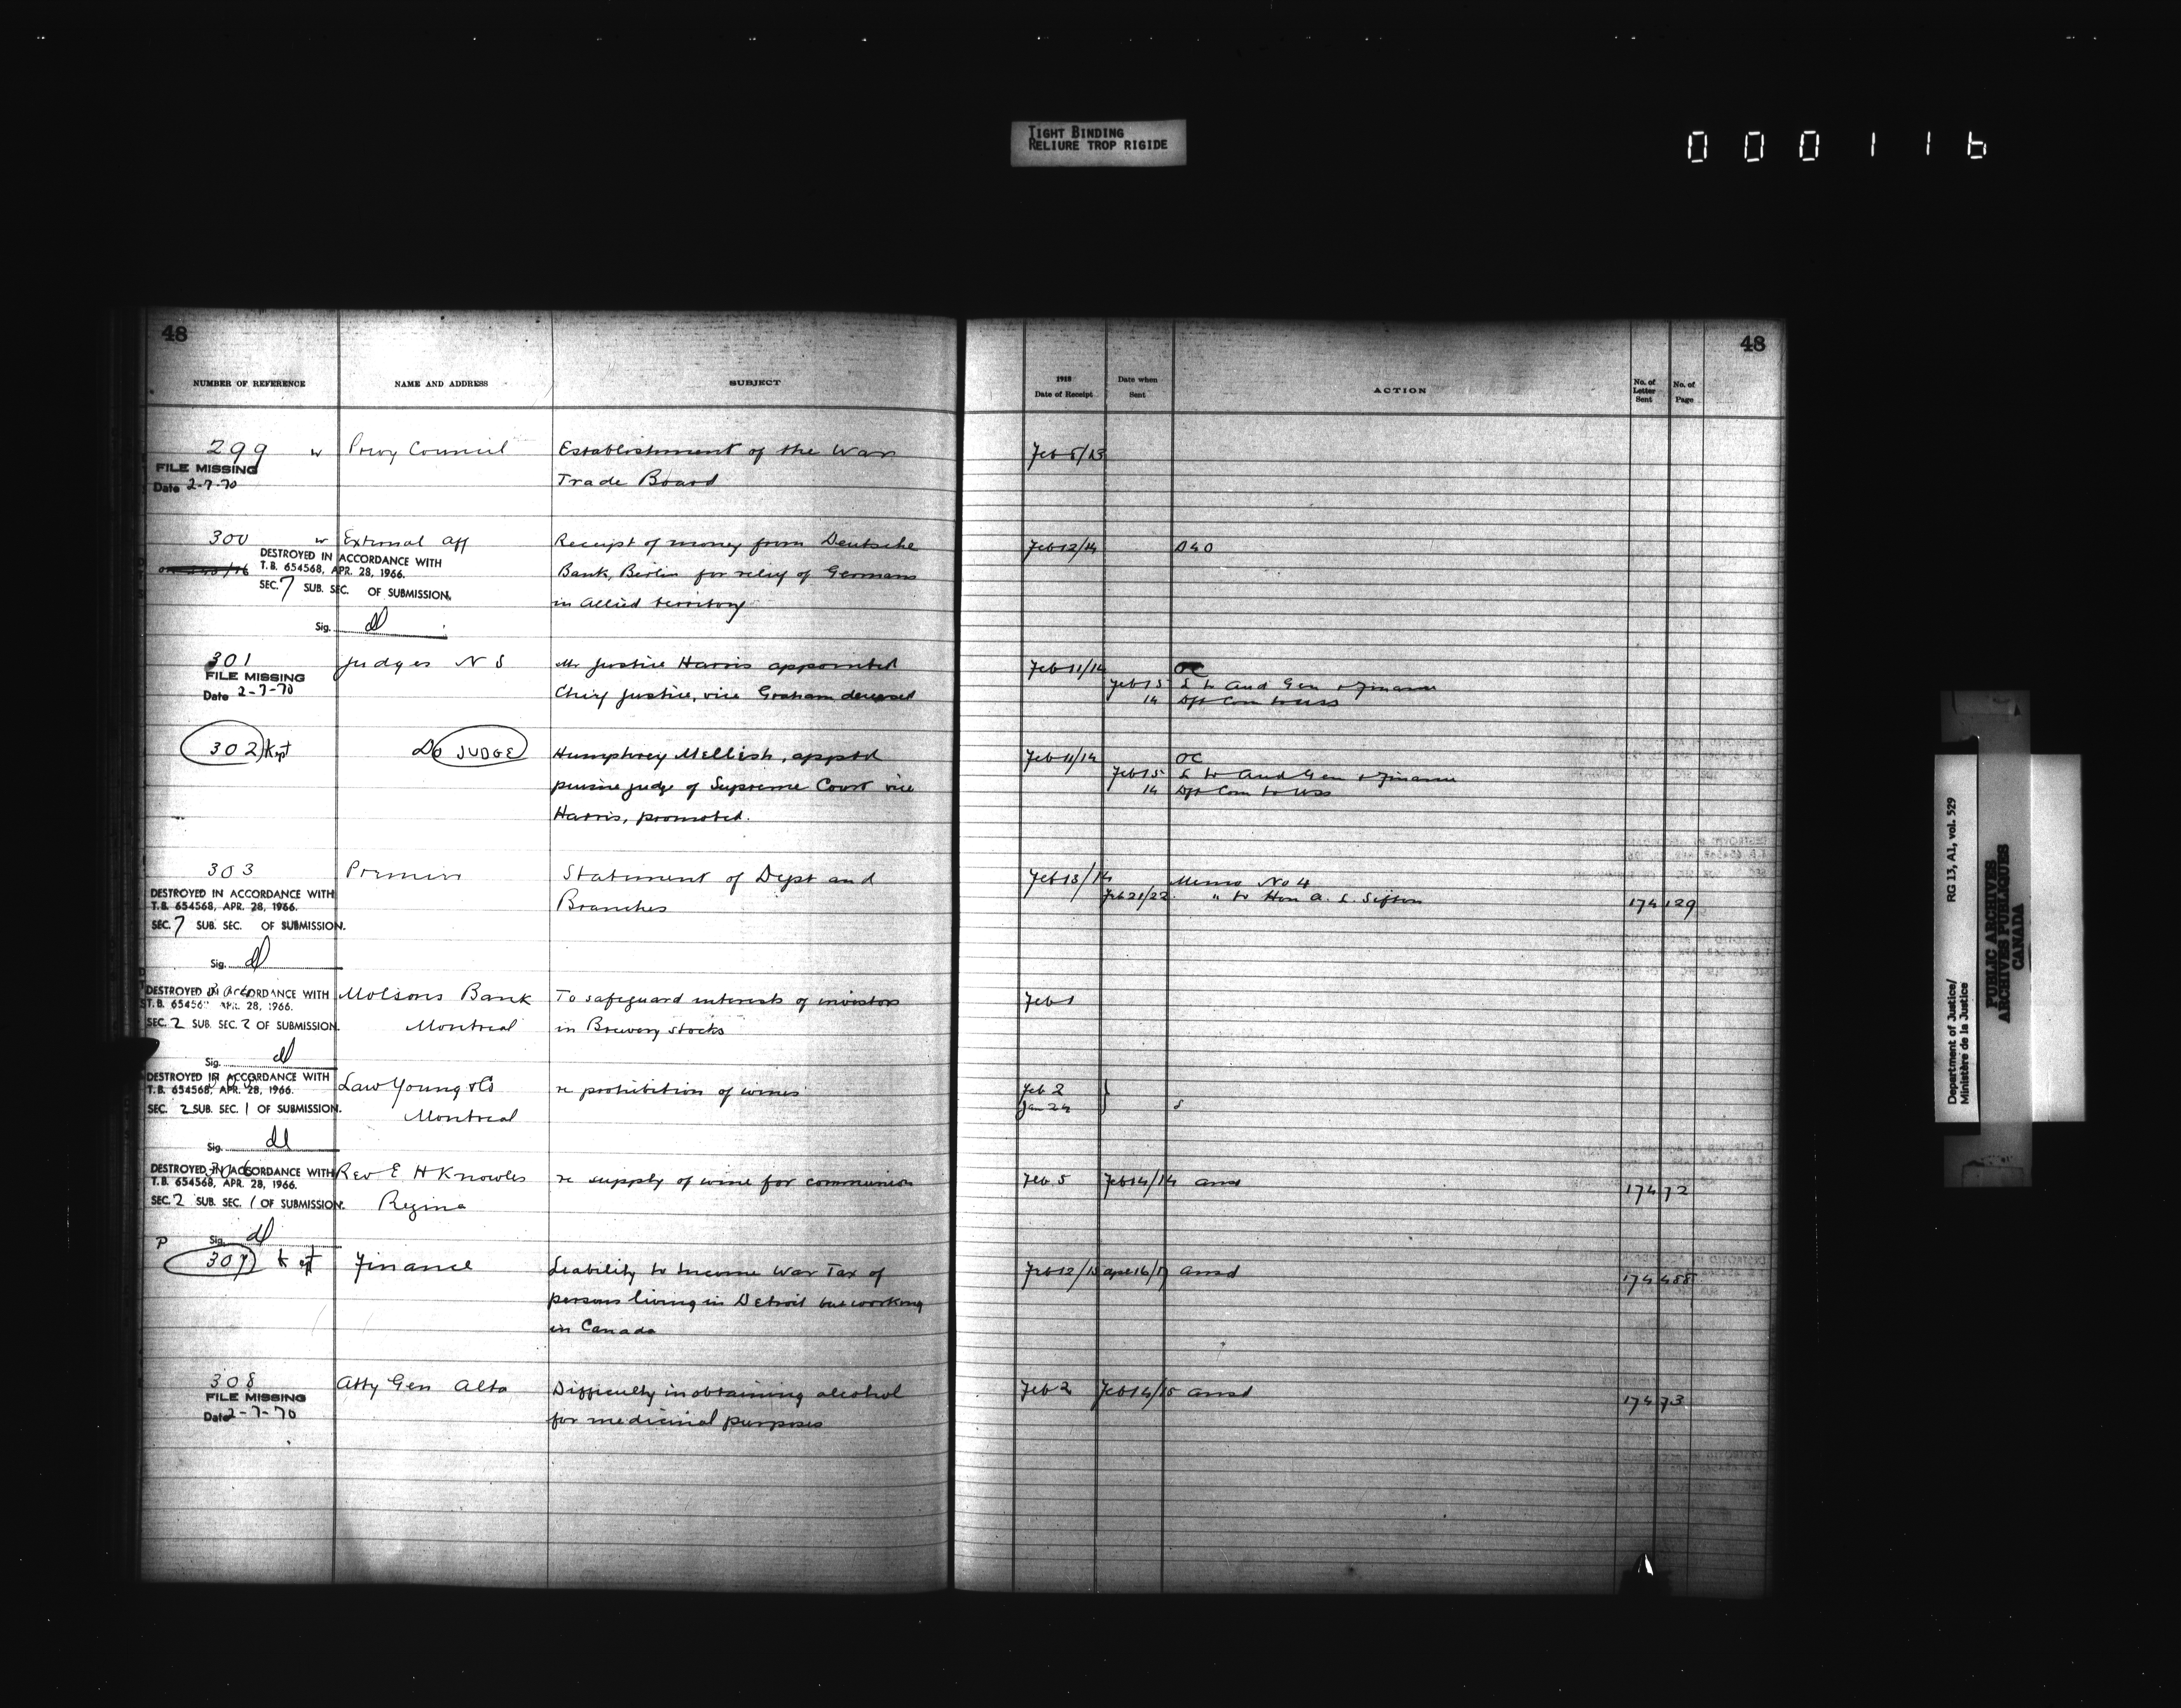 TIGHT BINDING
RELIURE TROP RIGIDE
000116
48
48
NUMBER OF REFERENCE NAME AND ADDRESS SUBJECT 1918 Date of Receipt Date when Sent ACTION No. of Letter Sent No. of Page
299 w Privy Council Establishment of the War Feb 8/13
FILE MISSING
Date 2-7-70 Trade Board
300 w External Aff Receipt of money from Deutsche Feb 12/14
DESTROYED IN ACCORDANCE WITH
T.B. 654568, APR. 28, 1966. Bank, Berlin for relief of Germans
SEC. 7 SUB. SEC. OF SUBMISSION.
in Allied territory
Sig.
301 Judges N S Mr Justice Harris appointed Feb 11/14 OC
FILE MISSING
Date 2-7-70 Chief Justice, vice Graham deceased Feb 15 L to Aud Gen & Finance
14 Dft Com to USS
302 Kept Do JUDGE Humphrey Mellish, apptd Feb 11/14 OC
puisne judge of Supreme Court vice Feb 15 L to Aud Gen & Finance
14 Dft Com to USS
Harris, promoted.
303 Premier Statement of Dept and Feb 13/14 Memo No 4
DESTROYED IN ACCORDANCE WITH
T.B. 654568, APR. 28, 1966. Branches Feb 21/22 " to Hon A. L. Sifton 174 129
SEC. 7 SUB. SEC. OF SUBMISSION.
Sig.
DESTROYED IN ACCORDANCE WITH Molsons Bank To safeguard interests of investors Feb 1
T.B. 654568 APR. 28, 1966.
SEC. 2 SUB. SEC. 2 OF SUBMISSION. Montreal in Brewery stocks
Sig.
DESTROYED IN ACCORDANCE WITH Law Young & Co re prohibition of wines Feb 2
T.B. 654568, APR. 28, 1966.
SEC. 2 SUB. SEC. 1 OF SUBMISSION. Montreal Jan 24
Sig.
DESTROYED IN ACCORDANCE WITH Rev E H Knowles re supply of wine for communion Feb 5 Feb 14/14 ansd 174 72
T.B. 654568, APR. 28, 1966.
SEC. 2 SUB. SEC. 1 OF SUBMISSION. Regina
Sig.
P
307 Kept Finance Liability to Income War Tax of Feb 12/15 Apr 16/17 ansd 174 488
persons living in Detroit but working
in Canada
308 Atty Gen Alta Difficulty in obtaining alcohol Feb 2 Feb 14/15 ansd 174 73
FILE MISSING
Date 2-7-70 for medicinal purposes
Department of Justice/ RG 13, A1, vol. 529
Ministère de la Justice
PUBLIC ARCHIVES
ARCHIVES PUBLIQUES
CANADA